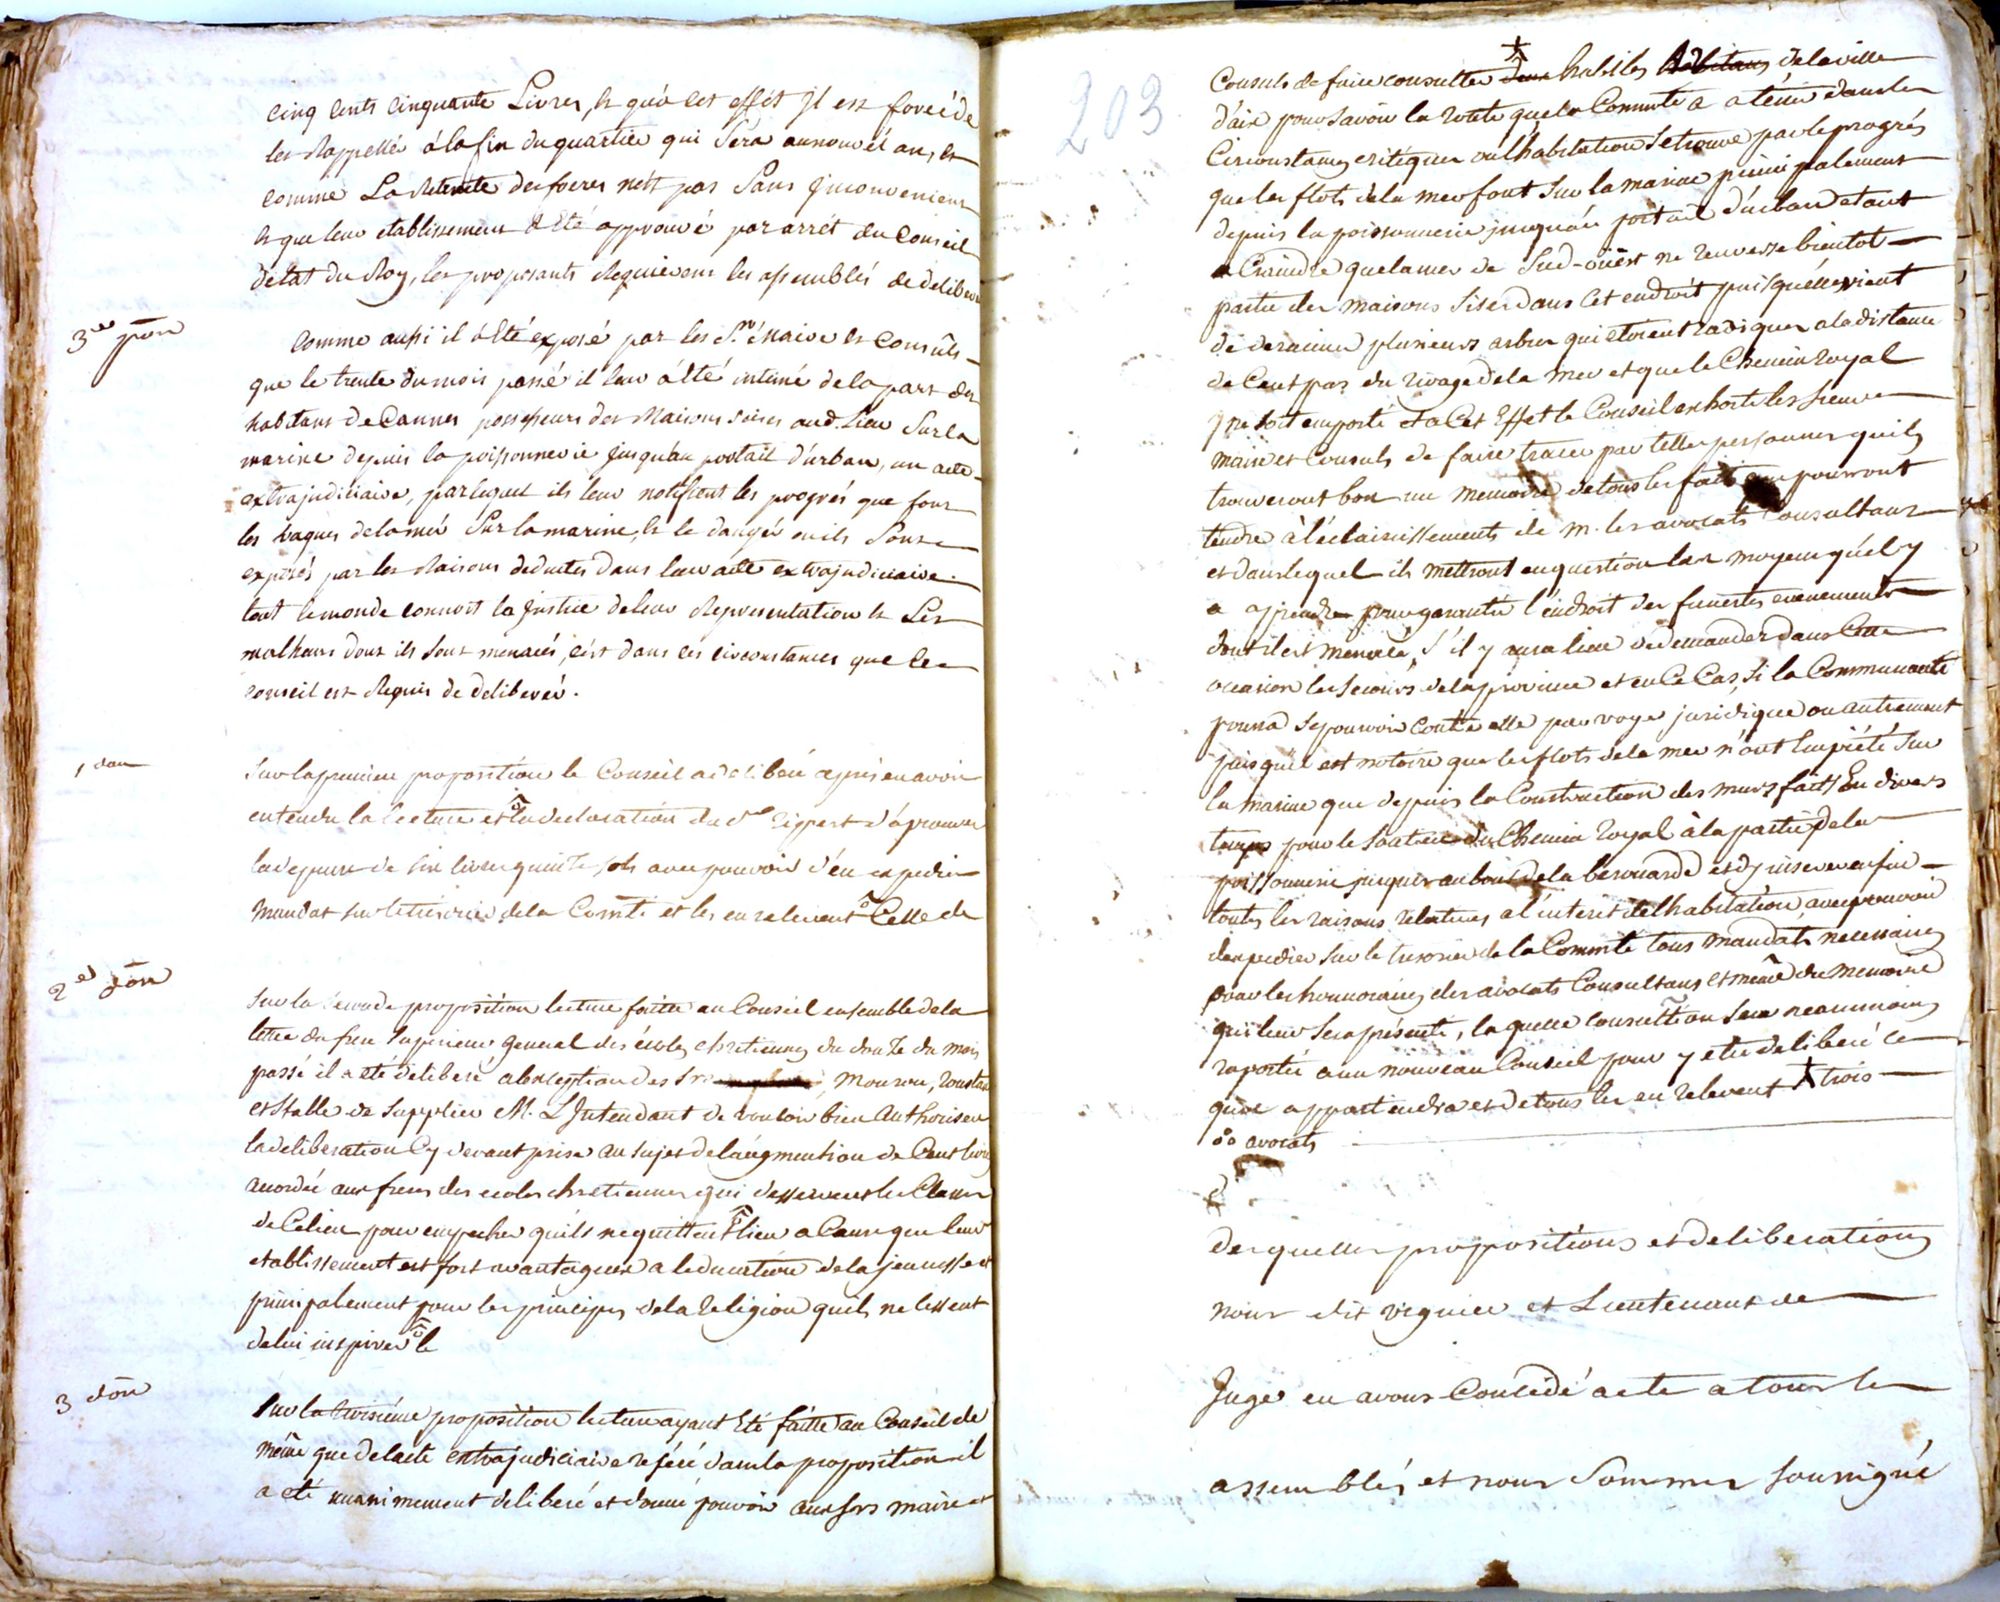 cinq cents cinquante Livres, & qu'à cet effét jl est forcé de
les Rappellér à la fin du quartier qui sera au nouvél an, et
comme La Retraite des freres n'ést pas sans jnconvenient
& que leur etablissement a été approuvé par arrét du Conseil
d'état du Roy, les proposants Requierent les assemblés de deliberer
3me pon
Comme aussi il a été exposé par les Srs Maire et Consuls
que le trente du mois passé il leur a été intimé de la part des
habitans de Cannes possesseurs des Maisons sises aud. Lieu sur la
marine depuis la poissonnerie jusqu'au portail d'urban, un acte
extrajudiciaire, par lequel ils leur notifient les progrés que font
les vagues de la mér sur la marine, & le dangér ou ils sont
exposés par les Raisons deduites dans leur acte extrajudiciaire
tout le monde connoit la justice de leur Representation & Les
malheurs dont ils sont menacés, c'ést dans ces circonstances que le
conseil est Requis de deliberér.
1 don
Sur la premiere proposition le Conseil a deliberé apres en avoir
entendu la lecture et la declaration du Sr rippert d'aprouver
la depense de six livres quinze sols avec pouvoir d'en expedier
Mandat sur le tresorier de la Comté et les en relevent Celle de
2e don
Sur la seconde proposition lecture faitte au Conseil ensemble de la
lettre du frere Superieur general des écoles chretiennes du douze du mois
passé il a eté deliberé a l'exception des Srs Mouron, Roustan
et Stalle de Supplier M. L'Intendant de vouloir bien authoriser
la deliberation Cy devant prise au sujet de l'augmention de Cent livres
accordée aux freres des ecoles chretiennes qui desservent les Classes
de Ce lieu pour empecher qu'ils ne quittent lieu a Cause que leur
etablissement est fort avantageux a l'education de la jeunesse et
principalement pour les principes de la Religion quils ne cessent
de lui inspirer le
3 don
Sur la troisiéme proposition lecture ayant Eté faitte au Conseil de
même que de l'acte extrajudiciaire reféré dans la proposition il
a eté unanimement deliberé et donné pouvoir aux srs maire et
203
Consuls de faire consulter deux habiles habitans de la ville
d'aix pour savoir la route que la Commté a a tenir dans les
Circonstances critiques ou l'habitation se trouve par le progrés
que les flots de la mer font sur la marine principalement
depuis la poissonnerie jusqu'au portail d'urban etant
a Craindre que la mer de Sud-ouëst ne renverse bientot
partie des maisons sises dans Cet endroit puis qu'elle vient
de deraciner plusieurs arbres qui etoient radiques a la distance
de Cent pas du rivage de la mer et que le Chemin royal
ne soit emporté et a Cet Effet le Conseil exhorte les sieurs
maire et Consuls de faire tracer par telles personnes quils
trouveront bon un memoire de tous les faits qui pourront
tendre à l'éclaircissements de m. les avocats Consultans
et dans lequel ils mettront en question les moyens qu'il y
a a prendre pour garantir l'endroit des funestes evenements
dont il est menacé, s'il y aura lieu de demander dans Cette
occasion les secours de la province et en Ce Cas, si la Communauté
pourra se pourvoir contre elle par voye juridique ou autrement
puis qu'il est notoire que les flots de la mer n'ont Empiété sur
la marine que depuis la Construction des murs faits En divers
temps pour le soutien du Chemin royal à la partie de la
poissonnerie jusques au bout de la berouarde et d'y inserer enfin
toutes les raisons relatives a l'interet de l'habitation, avec pouvoir
d'expedier sur le tresorier de la Commté tous mandats necessaires
pour les honnoraires des avocats Consultans et même du memoire
qui leur sera présenté, laquelle consultion sera neanmoins
raportée a un nouveau Conseil pour y etre deliberé ce
qu'il appartiendra et de tous les en relevent trois
avocats
des quelles propositions et deliberations
nous dit viguier et Lieutenant de
Juge en avons Concédé acte a tous les
assemblés et nous sommes soussigné